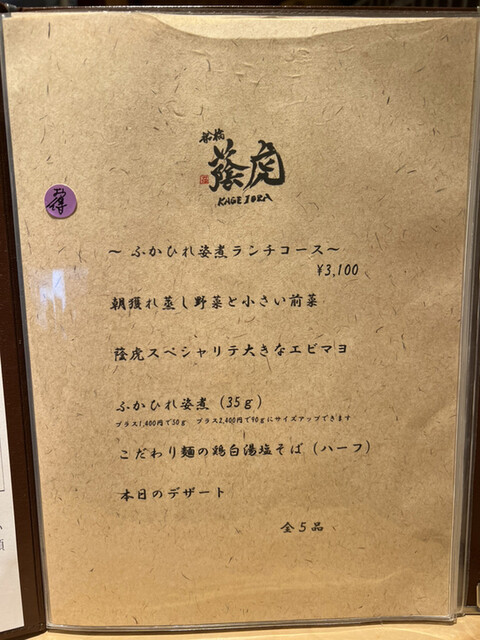 船橋
蔭虎
KAGETORA
得
～ ふかひれ姿煮ランチコース～
¥3,100
朝獲れ蒸し野菜と小さい前菜
蔭虎スペシャリテ大きなエビマヨ
ふかひれ姿煮 (35g)
プラス1,400円で50g プラス2,400円で90gにサイズアップできます
こだわり麺の鶏白湯塩そば (ハーフ)
本日のデザート
全5品